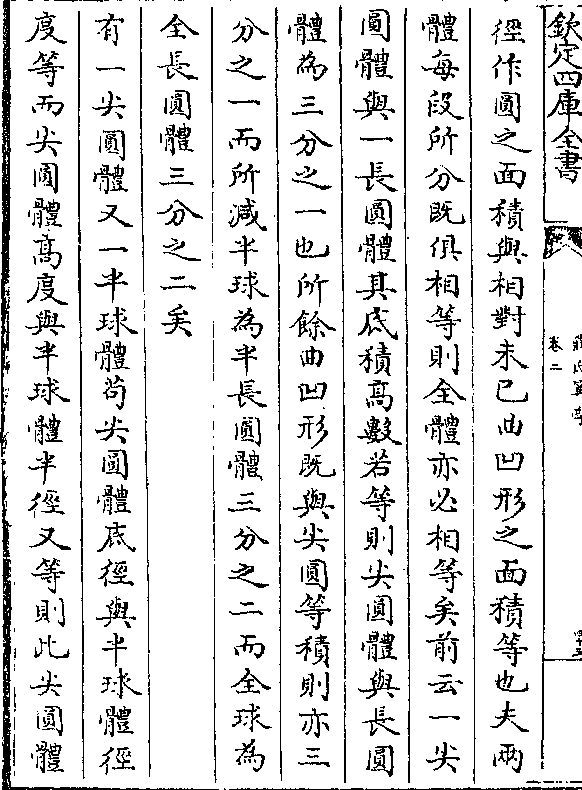 欽定四庫全書
卷二
徑作圓之面積與相對未已曲凹形之面積等也夫兩
體每段所分既俱相等則全體亦必相等矣前云一尖
圓體與一長圓體其底積高數若等則尖圓體與長圓
體為三分之一也所餘曲凹形既與尖圓等積則亦三
分之一而所減半球為半長圓體三分之二而全球為
全長圓體三分之二矣
有一尖圓體又一半球體苟尖圓體底徑與半球體徑
度等而尖圓體高度與半球體半徑又等則此尖圓體